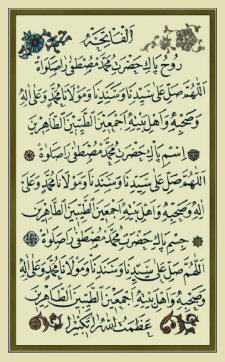 الْفَاتِحَةْ
رُوحِ پَاكِ حَضْرَتِ مُحَمَّدْ مُصْطَفٰى رَا صَلَوَاةْ
اَللّٰهُمَّ صَلِّ عَلٰى سَيِّدِنَا وَسَنَدِنَا وَمَوْلَانَا مُحَمَّدٍ وَعَلٰى اٰلِهٖ
وَصَحْبِهٖ وَاَهْلِ بَيْتِهٖ اَجْمَعِينَ الطَّيِّبِينَ الطَّاهِرِينَ
اِسْمِ پَاكِ حَضْرَتِ مُحَمَّدْ مُصْطَفٰى رَا صَلَوَاةْ
اَللّٰهُمَّ صَلِّ عَلٰى سَيِّدِنَا وَسَنَدِنَا وَمَوْلَانَا مُحَمَّدٍ وَعَلٰى
اٰلِهٖ وَصَحْبِهٖ وَاَهْلِ بَيْتِهٖ اَجْمَعِينَ الطَّيِّبِينَ الطَّاهِرِينَ
جِسْمِ پَاكِ حَضْرَتِ مُحَمَّدْ مُصْطَفٰى رَا صَلَوَاةْ
اَللّٰهُمَّ صَلِّ عَلٰى سَيِّدِنَا وَسَنَدِنَا وَمَوْلَانَا مُحَمَّدٍ وَعَلٰى اٰلِهٖ
وَصَحْبِهٖ وَاَهْلِ بَيْتِهٖ اَجْمَعِينَ الطَّيِّبِينَ الطَّاهِرِينَ
عَظَمَتِ اللّٰه رَا تَكْبِيرْ